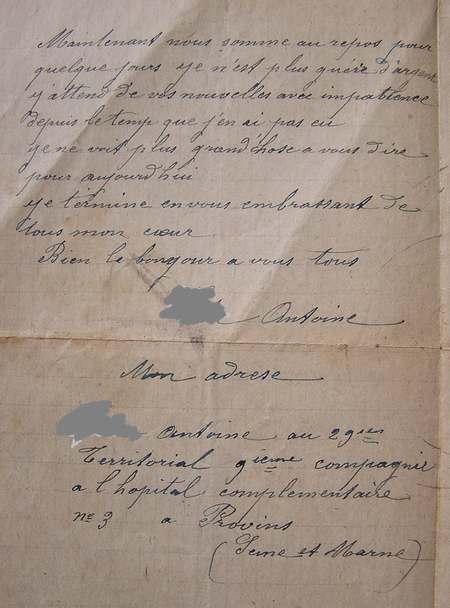 Maintenant nous somme au repos pour
quelque jours je n'est plus guère d'argent
j'attend de vos nouvelles avec impatience
depuis le temp que j'en ai pas eu
je ne voit plus grand'chose a vous dire
pour aujourd'hui
je termine en vous embrassant de
tous mon cœur
Bien le bonjour a vous tous
Antoine
Mon adrese
Antoine au 29ies
Territorial 9ieme compagnie
a l hopital complementaire
no 3 a Provins
(Seine et Marne)